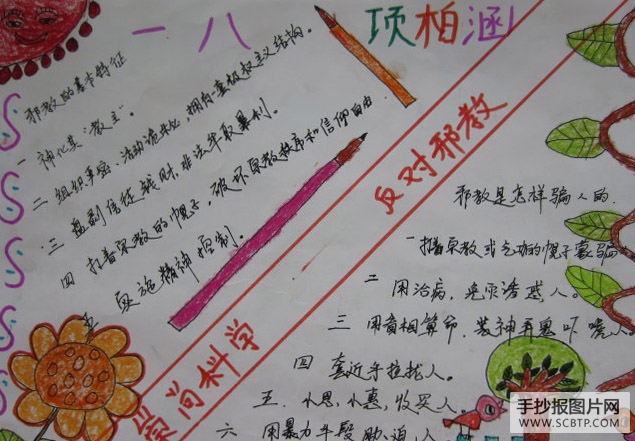 一 八 项柏涵
邪教的基本特征
一 神化其"教主"。
二 组织严密,活动诡秘,拥有一套极权主义结构。
三 盘剥信徒钱财,非法牟取暴利。
四 打着宗教的幌子,破坏宗教秩序和信仰自由
五 实施精神控制。
崇尚科学
反对邪教
邪教是怎样骗人的.
一 打着宗教或气功的幌子蒙骗
二 用治病,免灾诱惑人。
三 用看相算命,装神弄鬼吓唬人
四 套近乎拉拢人。
五. 小恩,小惠,收买人。
六 用暴力手段胁迫人
手抄报图片网
WWW.SCBTP.COM